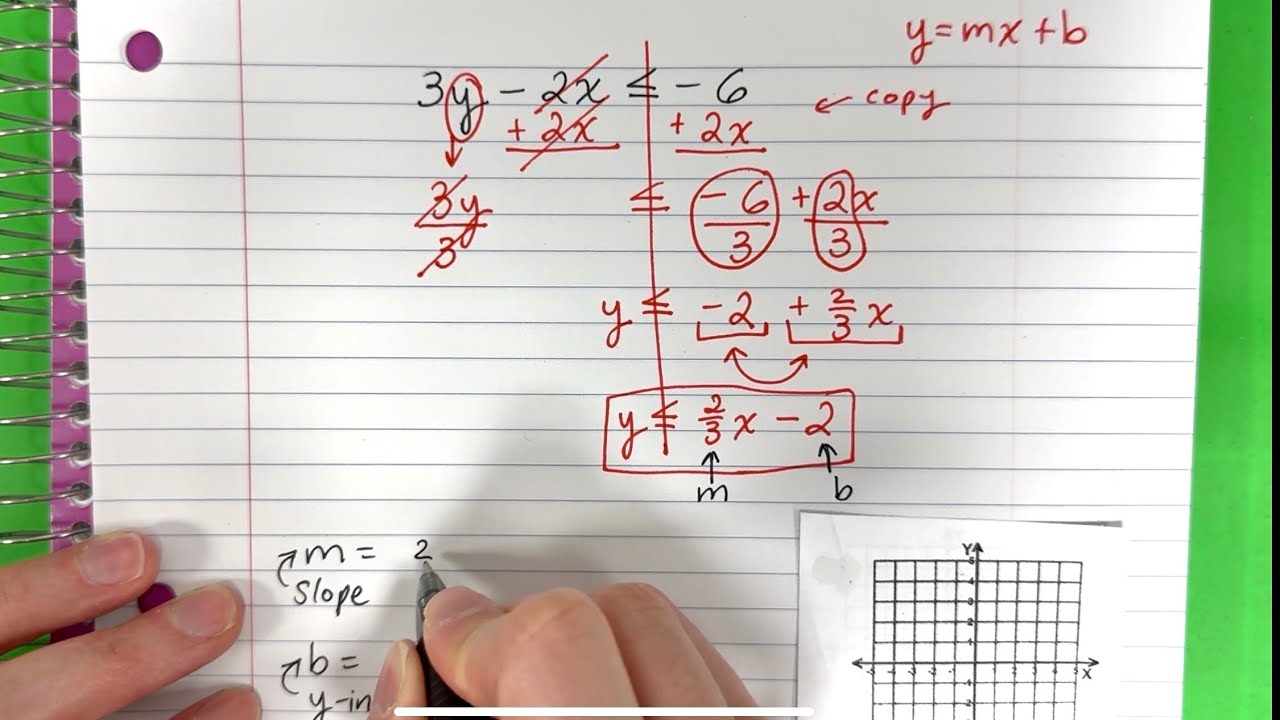 y = mx + b
3y - 2x ≤ - 6
← copy
+ 2x + 2x
3y ≤ - 6 + 2x
3 3 3
y ≤ - 2 + 2/3 x
y ≤ 2/3 x - 2
m b
m = 2
slope
b =
y-in
Y
5
4
3
2
1
X
-1
-2